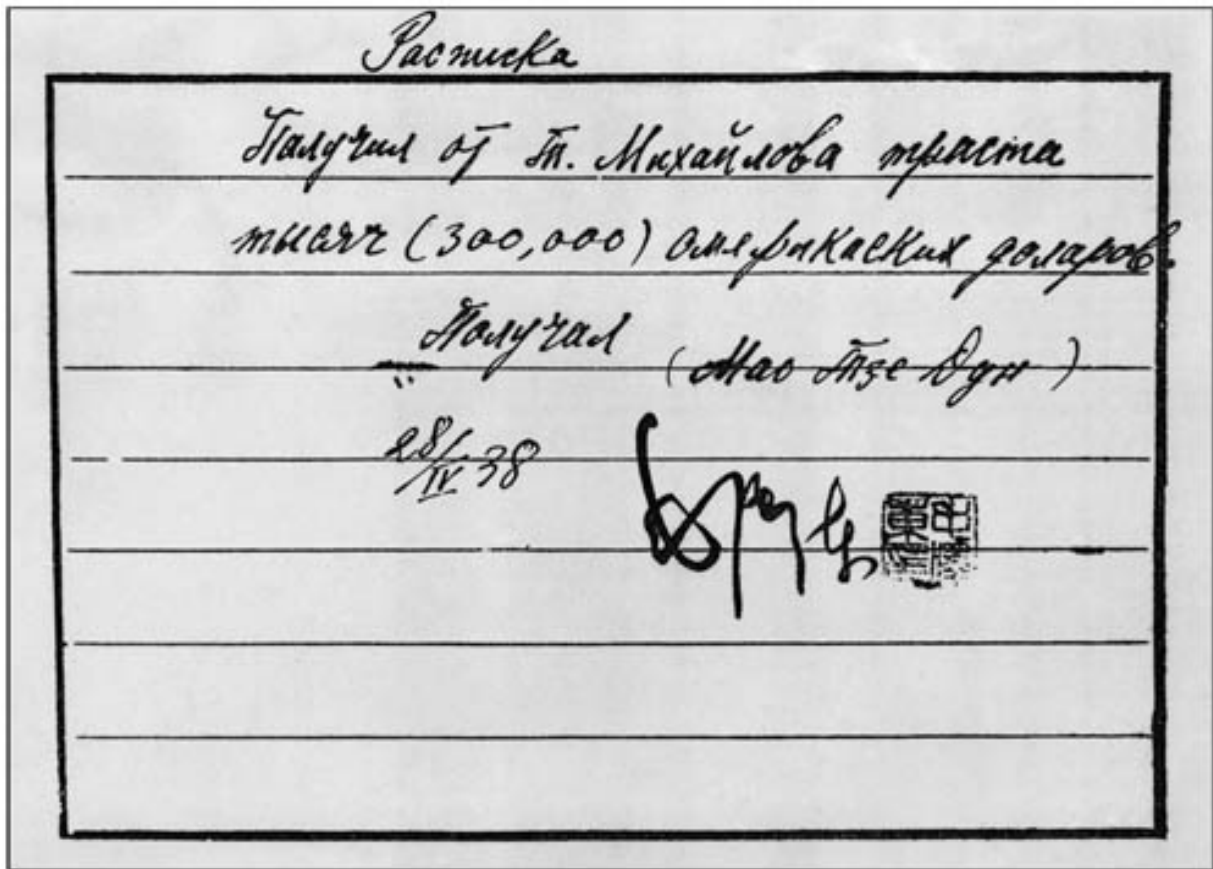 Расписка
Получил от т. Михайлова триста
тысяч (300,000) американских доларов.
Получил (Мао Тзе Дун)
28/IV 38
毛泽东